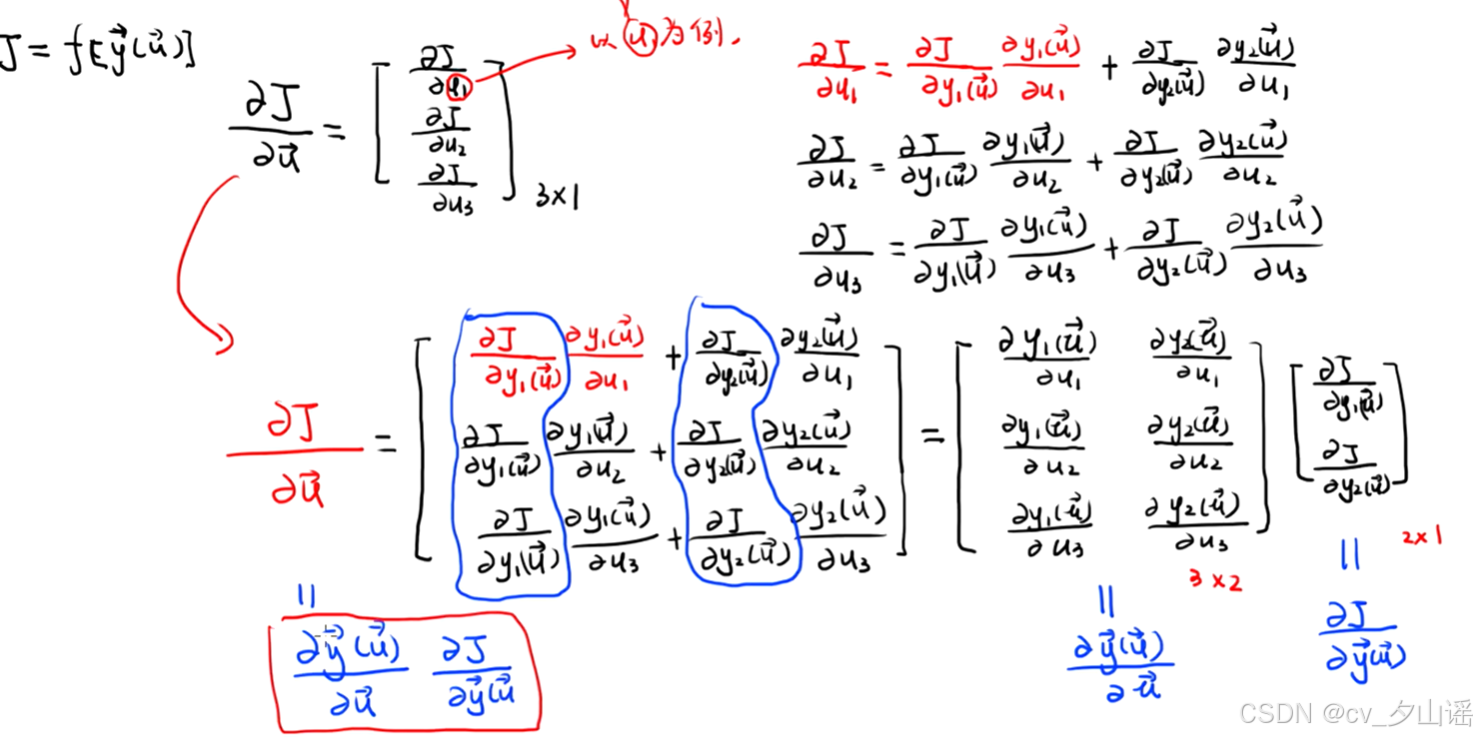 J = f[y⃗(u⃗)]
∂J/∂u⃗ = [ ∂J/∂u₁ ; ∂J/∂u₂ ; ∂J/∂u₃ ] 3×1
以 u₁ 为例.
∂J/∂u₁ = ∂J/∂y₁(u⃗) ∂y₁(u⃗)/∂u₁ + ∂J/∂y₂(u⃗) ∂y₂(u⃗)/∂u₁
∂J/∂u₂ = ∂J/∂y₁(u⃗) ∂y₁(u⃗)/∂u₂ + ∂J/∂y₂(u⃗) ∂y₂(u⃗)/∂u₂
∂J/∂u₃ = ∂J/∂y₁(u⃗) ∂y₁(u⃗)/∂u₃ + ∂J/∂y₂(u⃗) ∂y₂(u⃗)/∂u₃
∂J/∂u⃗ = [ ∂J/∂y₁(u⃗) ∂y₁(u⃗)/∂u₁ + ∂J/∂y₂(u⃗) ∂y₂(u⃗)/∂u₁ ; ∂J/∂y₁(u⃗) ∂y₁(u⃗)/∂u₂ + ∂J/∂y₂(u⃗) ∂y₂(u⃗)/∂u₂ ; ∂J/∂y₁(u⃗) ∂y₁(u⃗)/∂u₃ + ∂J/∂y₂(u⃗) ∂y₂(u⃗)/∂u₃ ] = [ ∂y₁(u⃗)/∂u₁ ∂y₂(u⃗)/∂u₁ ; ∂y₁(u⃗)/∂u₂ ∂y₂(u⃗)/∂u₂ ; ∂y₁(u⃗)/∂u₃ ∂y₂(u⃗)/∂u₃ ] 3×2 [ ∂J/∂y₁(u⃗) ; ∂J/∂y₂(u⃗) ] 2×1
= ∂y⃗(u⃗)/∂u⃗ ∂J/∂y⃗(u⃗
= ∂y⃗(u⃗)/∂u⃗
= ∂J/∂y⃗(u⃗)
CSDN @cv_夕山谣